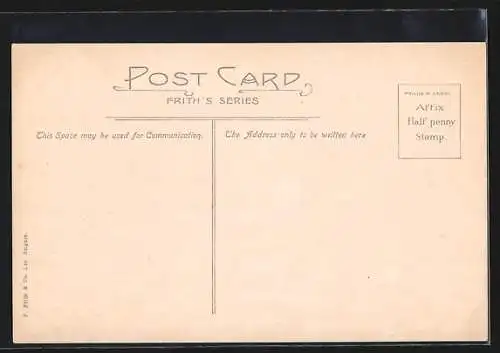 POST CARD
FRITH'S SERIES
This Space may be used for Communication.
The Address only to be written here
Affix
Half penny
Stamp.
F. Frith & Co. Ltd. Reigate.